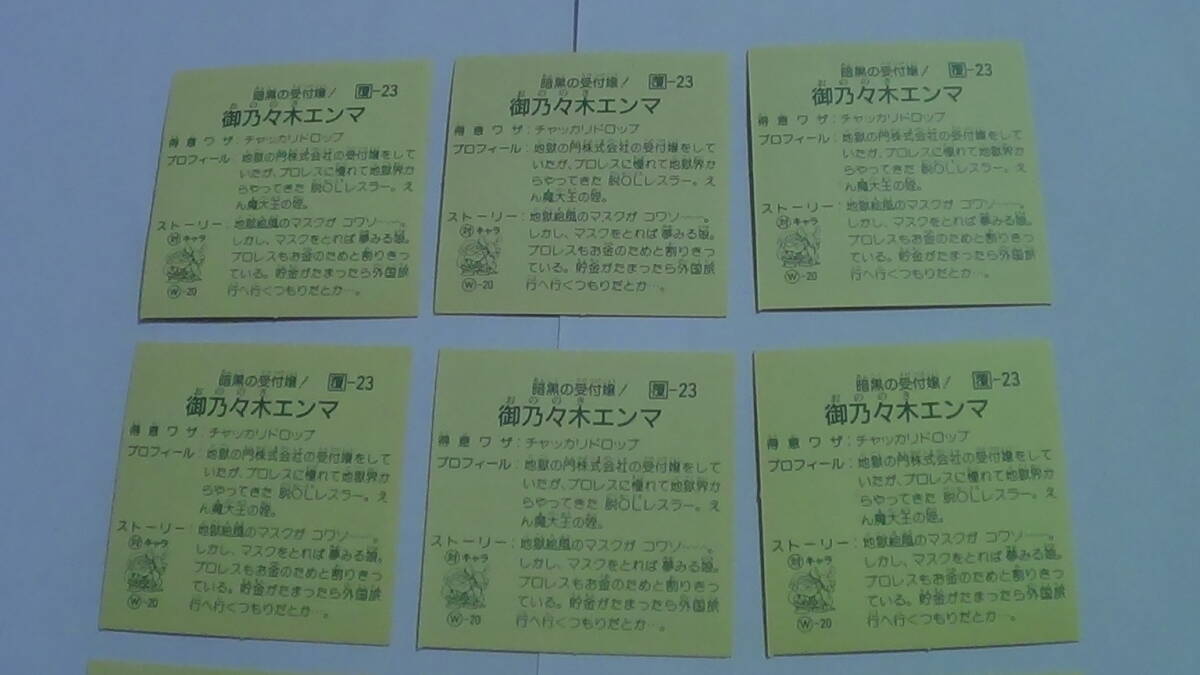 暗黒の受付嬢! 覆-23
おののき
御乃々木エンマ
得意ワザ:チャッカリドロップ
プロフィール:地獄の門株式会社の受付嬢をして
いたが、プロレスに憧れて地獄界か
らやってきた 脱OLレスラー。え
ん魔大王の姪。
ストーリー:地獄絵風のマスクが コワソ……。
対キャラ しかし、マスクをとれば夢みる娘。
プロレスもお金のためと割りきっ
ている。貯金がたまったら外国旅
W-20 行へ行くつもりだとか…。
暗黒の受付嬢! 覆-23
おののき
御乃々木エンマ
得意ワザ:チャッカリドロップ
プロフィール:地獄の門株式会社の受付嬢をして
いたが、プロレスに憧れて地獄界か
らやってきた 脱OLレスラー。え
ん魔大王の姪。
ストーリー:地獄絵風のマスクが コワソ……。
対キャラ しかし、マスクをとれば夢みる娘。
プロレスもお金のためと割りきっ
ている。貯金がたまったら外国旅
W-20 行へ行くつもりだとか…。
暗黒の受付嬢! 覆-23
おののき
御乃々木エンマ
得意ワザ:チャッカリドロップ
プロフィール:地獄の門株式会社の受付嬢をして
いたが、プロレスに憧れて地獄界か
らやってきた 脱OLレスラー。え
ん魔大王の姪。
ストーリー:地獄絵風のマスクが コワソ……。
対キャラ しかし、マスクをとれば夢みる娘。
プロレスもお金のためと割りきっ
ている。貯金がたまったら外国旅
W-20 行へ行くつもりだとか…。
暗黒の受付嬢! 覆-23
おののき
御乃々木エンマ
得意ワザ:チャッカリドロップ
プロフィール:地獄の門株式会社の受付嬢をして
いたが、プロレスに憧れて地獄界か
らやってきた 脱OLレスラー。え
ん魔大王の姪。
ストーリー:地獄絵風のマスクが コワソ……。
対キャラ しかし、マスクをとれば夢みる娘。
プロレスもお金のためと割りきっ
ている。貯金がたまったら外国旅
W-20 行へ行くつもりだとか…。
暗黒の受付嬢! 覆-23
おののき
御乃々木エンマ
得意ワザ:チャッカリドロップ
プロフィール:地獄の門株式会社の受付嬢をして
いたが、プロレスに憧れて地獄界か
らやってきた 脱OLレスラー。え
ん魔大王の姪。
ストーリー:地獄絵風のマスクが コワソ……。
対キャラ しかし、マスクをとれば夢みる娘。
プロレスもお金のためと割りきっ
ている。貯金がたまったら外国旅
W-20 行へ行くつもりだとか…。
暗黒の受付嬢! 覆-23
おののき
御乃々木エンマ
得意ワザ:チャッカリドロップ
プロフィール:地獄の門株式会社の受付嬢をして
いたが、プロレスに憧れて地獄界か
らやってきた 脱OLレスラー。え
ん魔大王の姪。
ストーリー:地獄絵風のマスクが コワソ……。
対キャラ しかし、マスクをとれば夢みる娘。
プロレスもお金のためと割りきっ
ている。貯金がたまったら外国旅
W-20 行へ行くつもりだとか…。